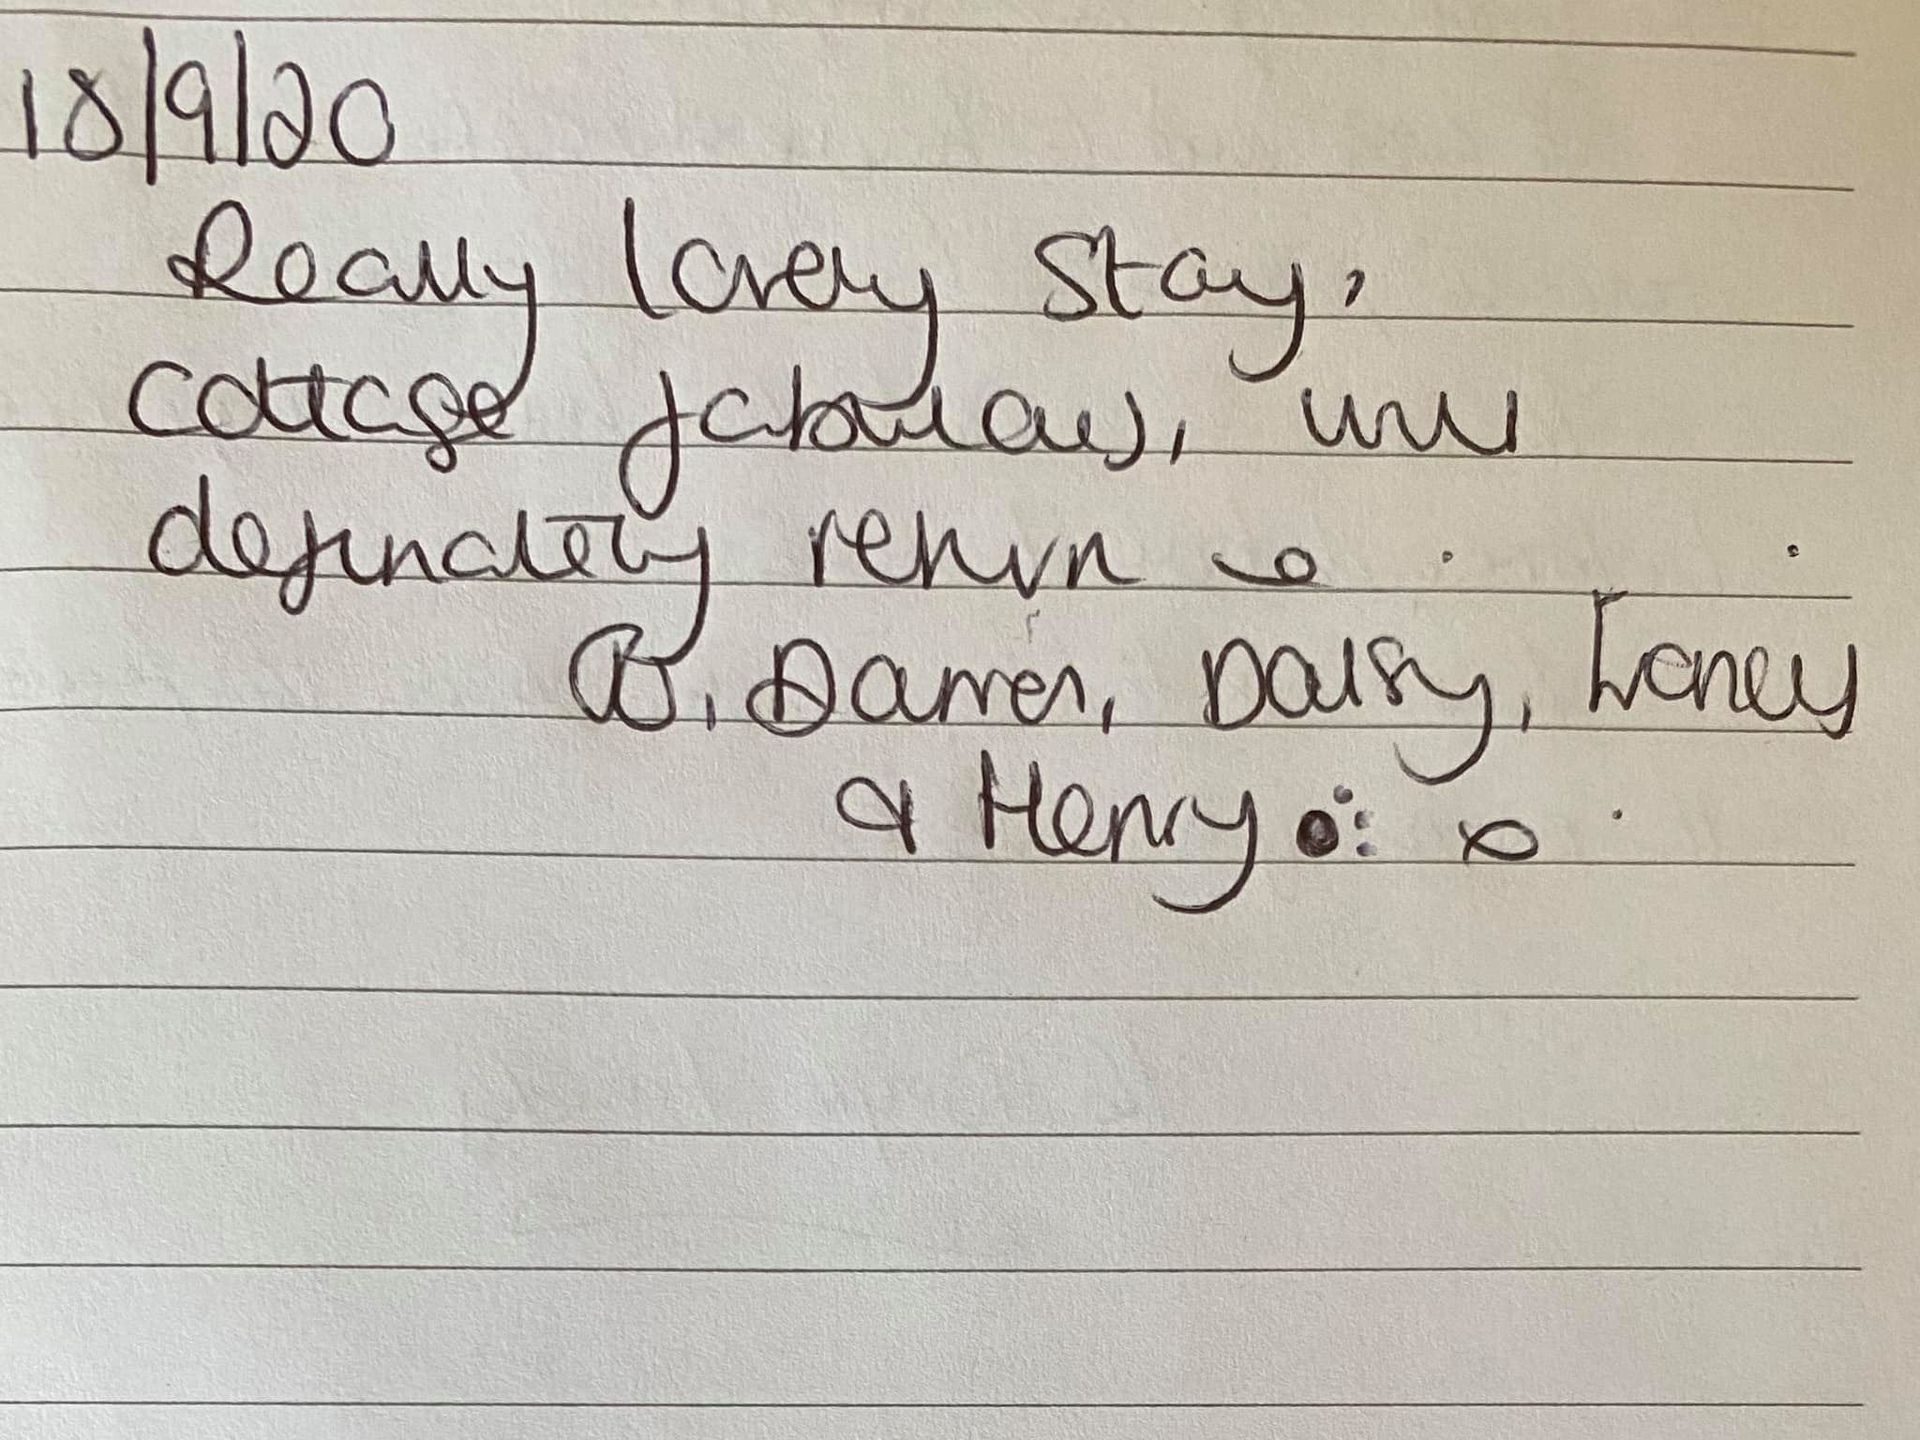 18/9/20
Really lovely stay,
cottage fabulous, will
definately return x
Darren, Daisy,
& Henry x